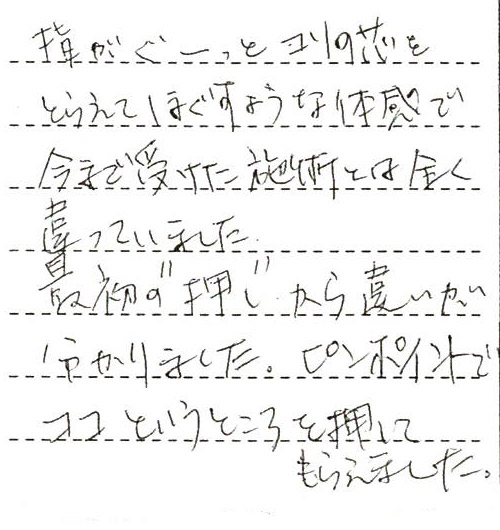 指がぐーっとコリの芯を
とらえてほぐすような体感で
今まで受けた施術とは全く
違っていました。
最初の"押し"から違いが
分かりました。ピンポイントで
ココというところを押して
もらえました。